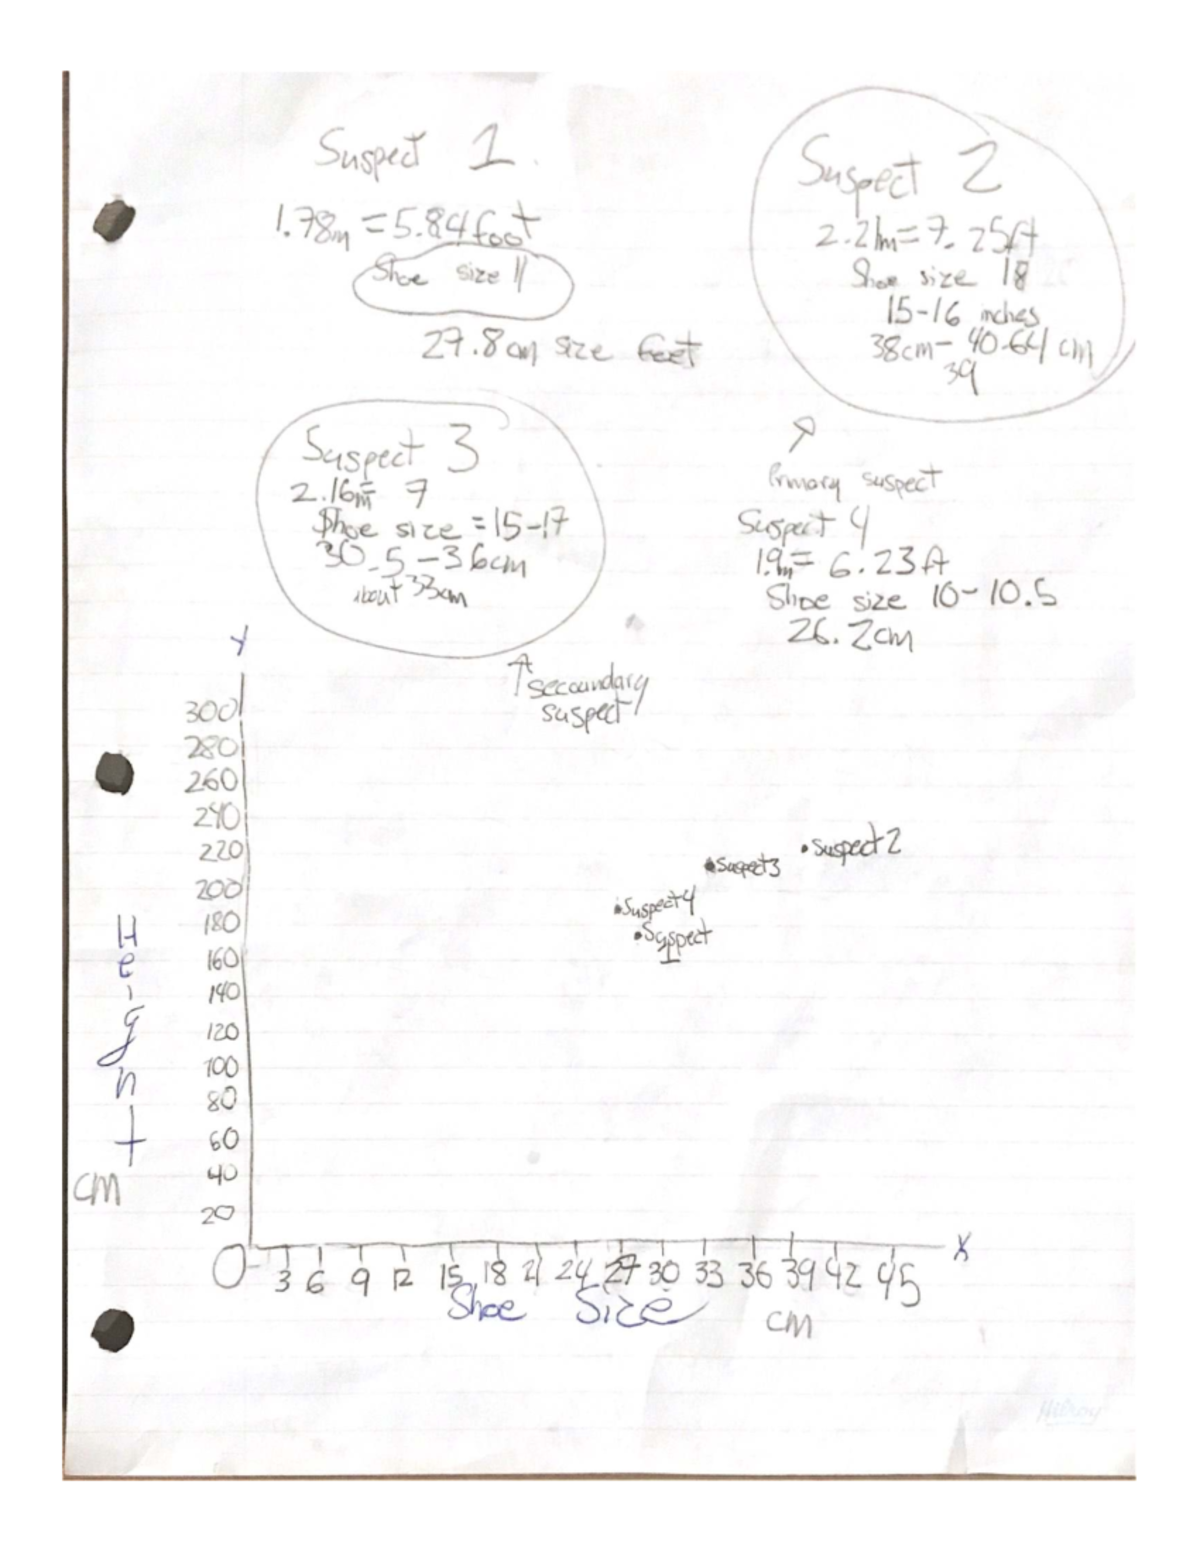 Suspect 1.
1.78m = 5.84 foot
Shoe size 11
27.8cm size feet
Suspect 2
2.21m = 7.25ft
Shoe size 18
15-16 inches
38cm - 40.64 cm
39
Primary suspect
Suspect 3
2.16m = 7
Shoe size = 15-17
30.5 - 36cm
about 33cm
secoundary
suspect
Suspect 4
1.9m = 6.23ft
Shoe size 10-10.5
26.2cm
Y
300
280
260
240
220
200
180
160
140
120
100
80
60
40
20
0
Height
cm
Suspect 2
Suspect 3
Suspect 4
Suspect
1
3 6 9 12 15 18 21 24 27 30 33 36 39 42 45
X
Shoe Size cm
Hilroy